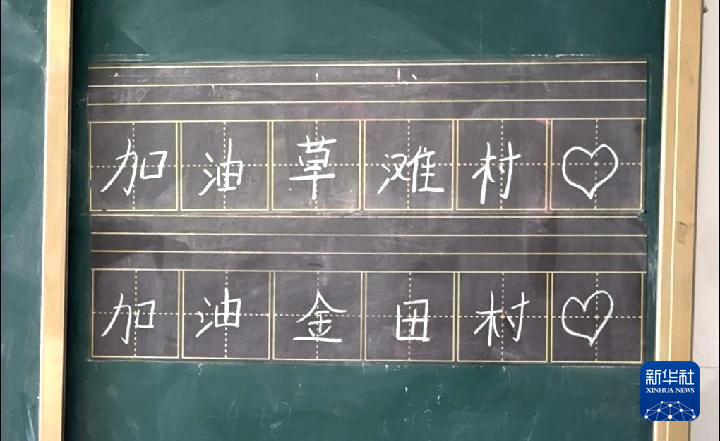 加油草滩村♡
加油金田村♡
新华社
XINHUA NEWS